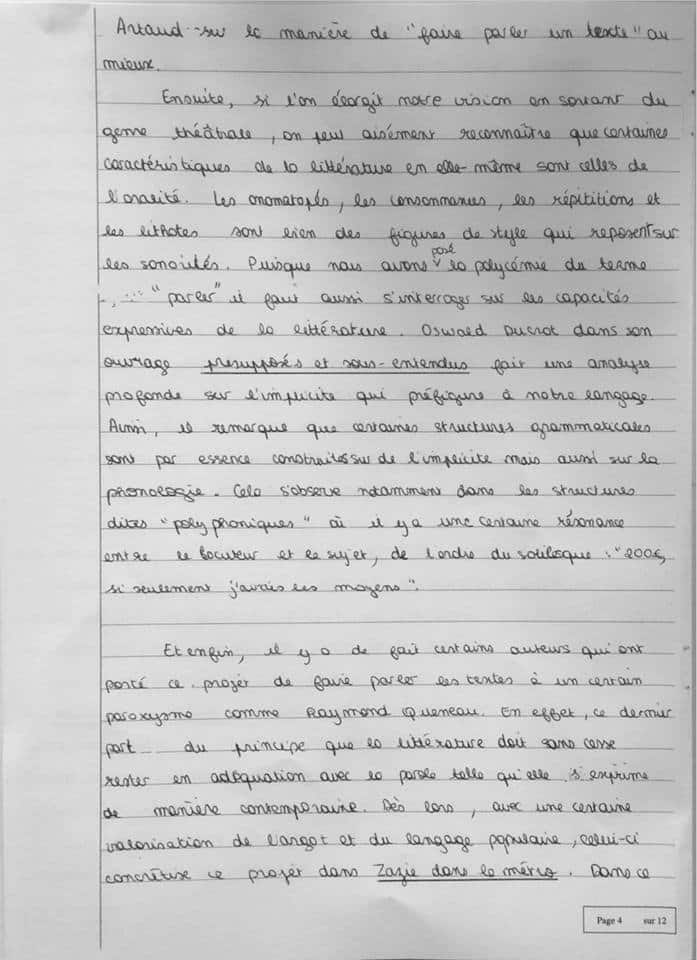 Artaud - sur la manière de "faire parler un texte" au
mieux.
Ensuite, si l'on élargit notre vision en sortant du
genre théâtrale, on peu aisément reconnaître que certaines
caractéristiques de la littérature en elle-même sont celles de
l'oralité. Les onomatopés, les consonnances, les répititions et
les lithotes sont bien des figures de style qui reposent sur
les sonorités. Puisque nous avons posé la polycémie du terme
"parler" il faut aussi s'interroger sur les capacités
expressives de la littérature. Oswald Ducrot dans son
ouvrage présupposés et sous-entendus fait une analyse
profonde sur l'implicite qui préfigure à notre langage.
Aussi, il remarque que certaines structures grammaticales
sont par essence construites sur de l'implicite mais aussi sur la
phonologie. Cela s'observe notamment dans les structures
dites "polyphoniques" où il y a une certaine résonance
entre le locuteur et le sujet, de l'ordre du soliloque : "200€,
si seulement j'avais les moyens".
Et enfin, il y a de fait certains auteurs qui ont
porté ce projet de faire parler les textes à un certain
paroxysme comme Raymond Queneau. En effet, ce dernier
part du principe que la littérature doit sans cesse
rester en adéquation avec la parole telle qu'elle s'exprime
de manière contemporaine. Dès lors, avec une certaine
valorisation de l'argot et du langage populaire, celui-ci
concrétise ce projet dans Zazie dans le métro. Dans ce
Page 4 sur 12